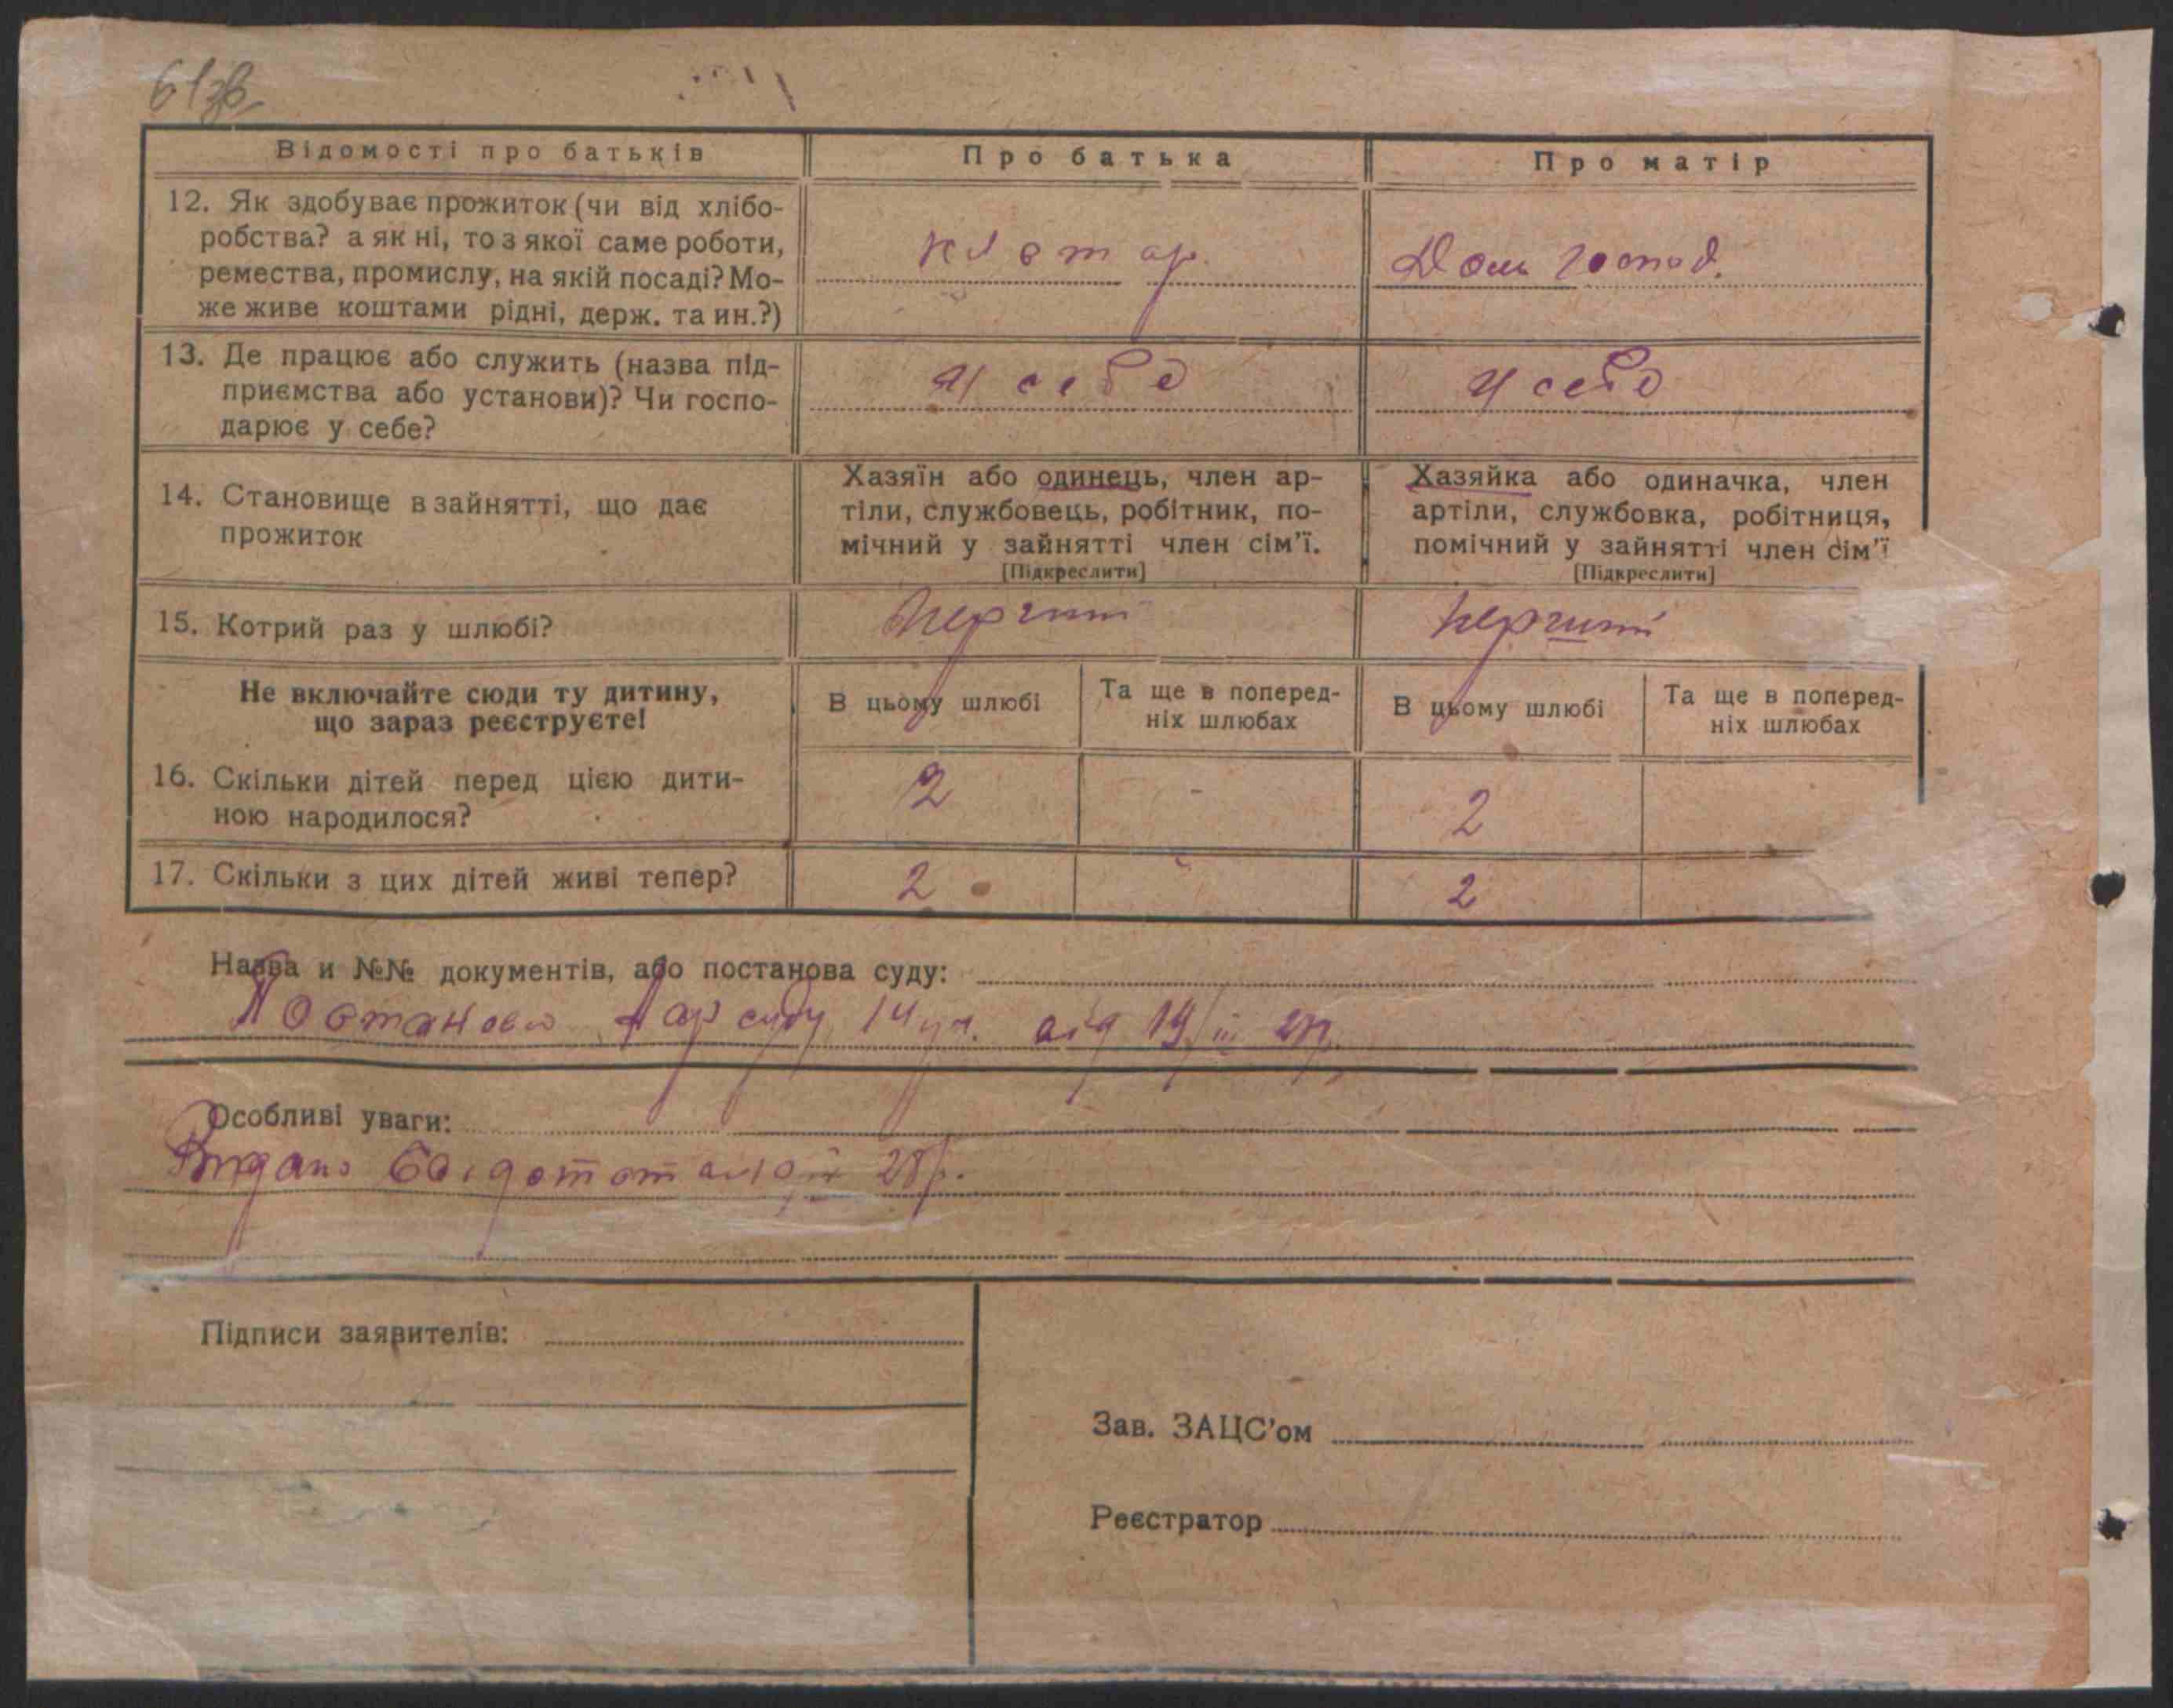 61зв
Відомості про батьків
Про батька
Про матір
12. Як здобуває прожиток (чи від хлібо-
робства? а як ні, то з якої саме роботи,
ремества, промислу, на якій посаді? Мо-
же живе коштами рідні, держ. та ин.?)
Дом господ.
13. Де працює або служить (назва під-
приємства або установи)? Чи госпо-
дарює у себе?
у себе
у себе
14. Становище в зайнятті, що дає
прожиток
Хазяїн або одинець, член ар-
тіли, службовець, робітник, по-
мічний у зайнятті член сім'ї.
[Підкреслити]
Хазяйка або одиначка, член
артіли, службовка, робітниця,
помічний у зайнятті член сім'ї
[Підкреслити]
15. Котрий раз у шлюбі?
Не включайте сюди ту дитину,
що зараз реєструєте!
В цьому шлюбі
Та ще в поперед-
ніх шлюбах
В цьому шлюбі
Та ще в поперед-
ніх шлюбах
16. Скільки дітей перед цією дити-
ною народилося?
2
-
2
17. Скільки з цих дітей живі тепер?
2
2
Назва и №№ документів, або постанова суду:
Постанова Нарсуду 14 уч. від 19/III
Особливі уваги:
Видано 28р.
Підписи заявителів:
Зав. ЗАЦС'ом
Реєстратор